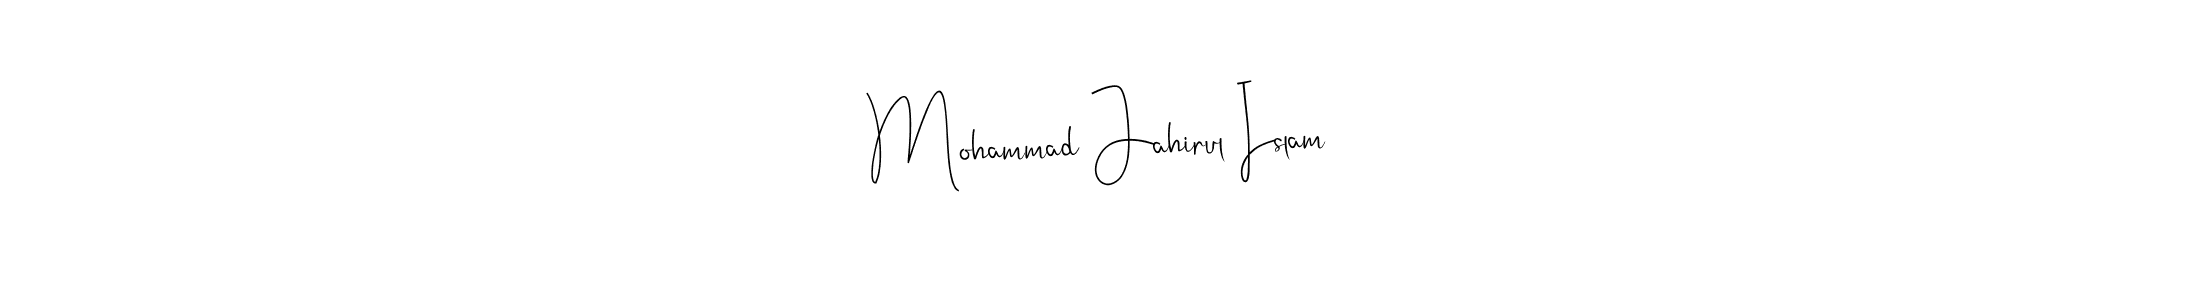 Mohammad Jahirul Islam